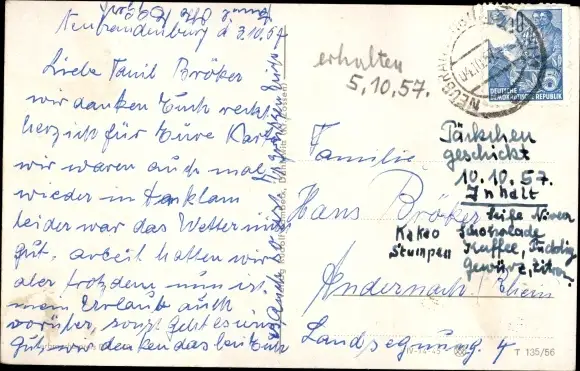 Neubrandenburg d 3.10.57
Liebe Famil Bröker
wir danken Euch recht
herzich für Eure Kart
wir waren auch mal
wieder in Anklam
leider war das Wetter nich
gut, arbeit hatten wir
aber trotzdem nun ist
mein Erlaub auch
vorüber, sonst geht es uns
gut wir denken das bei Euch
erhalten
5,10,57.
DEUTSCHE
DEMOKRATISCHE REPUBLIK
Päkchen
geschickt
10.10.57.
Inhalt
Seife Nivea
Kakao Schokolade
Stumpen Kaffee, Pudding
Gewürz, Zitron.
Familie
Hans Bröker
Andernach/Rhein
Landsegnung. 4
IV-14-45
T 135/56